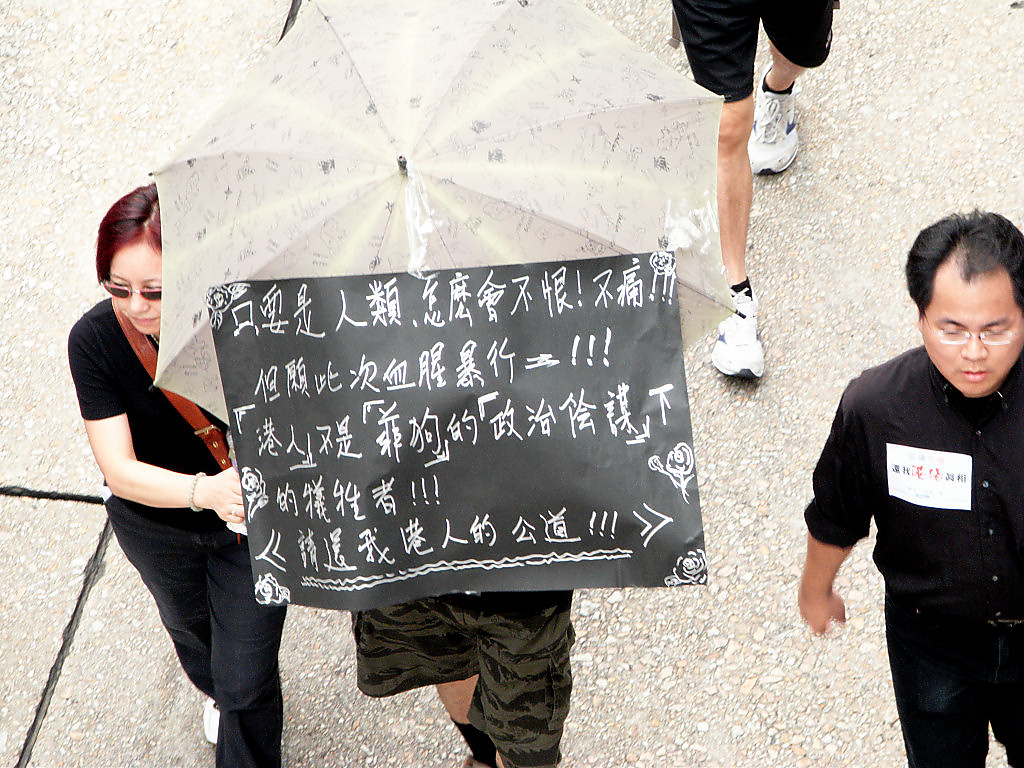 只要是人類,怎麼會不恨!不痛!!!
但願此次血腥暴行=!!!
「港人」不是「菲狗」的「政治陰謀」下
的犧牲者!!!
《請還我港人的公道!!!》
還我港傷真相